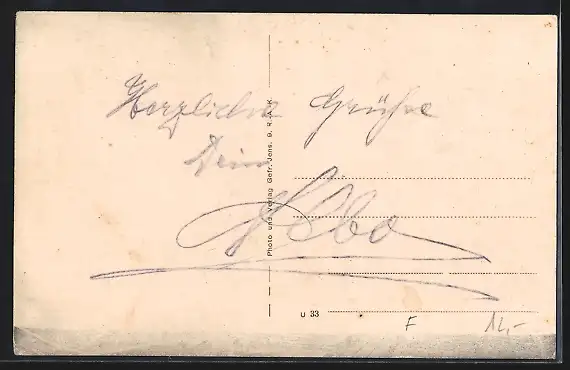 Herzliche Grüße
Dein
Photo und Verlag Gefr. Jens. 9. R. A. K.
U 33
F 12,-